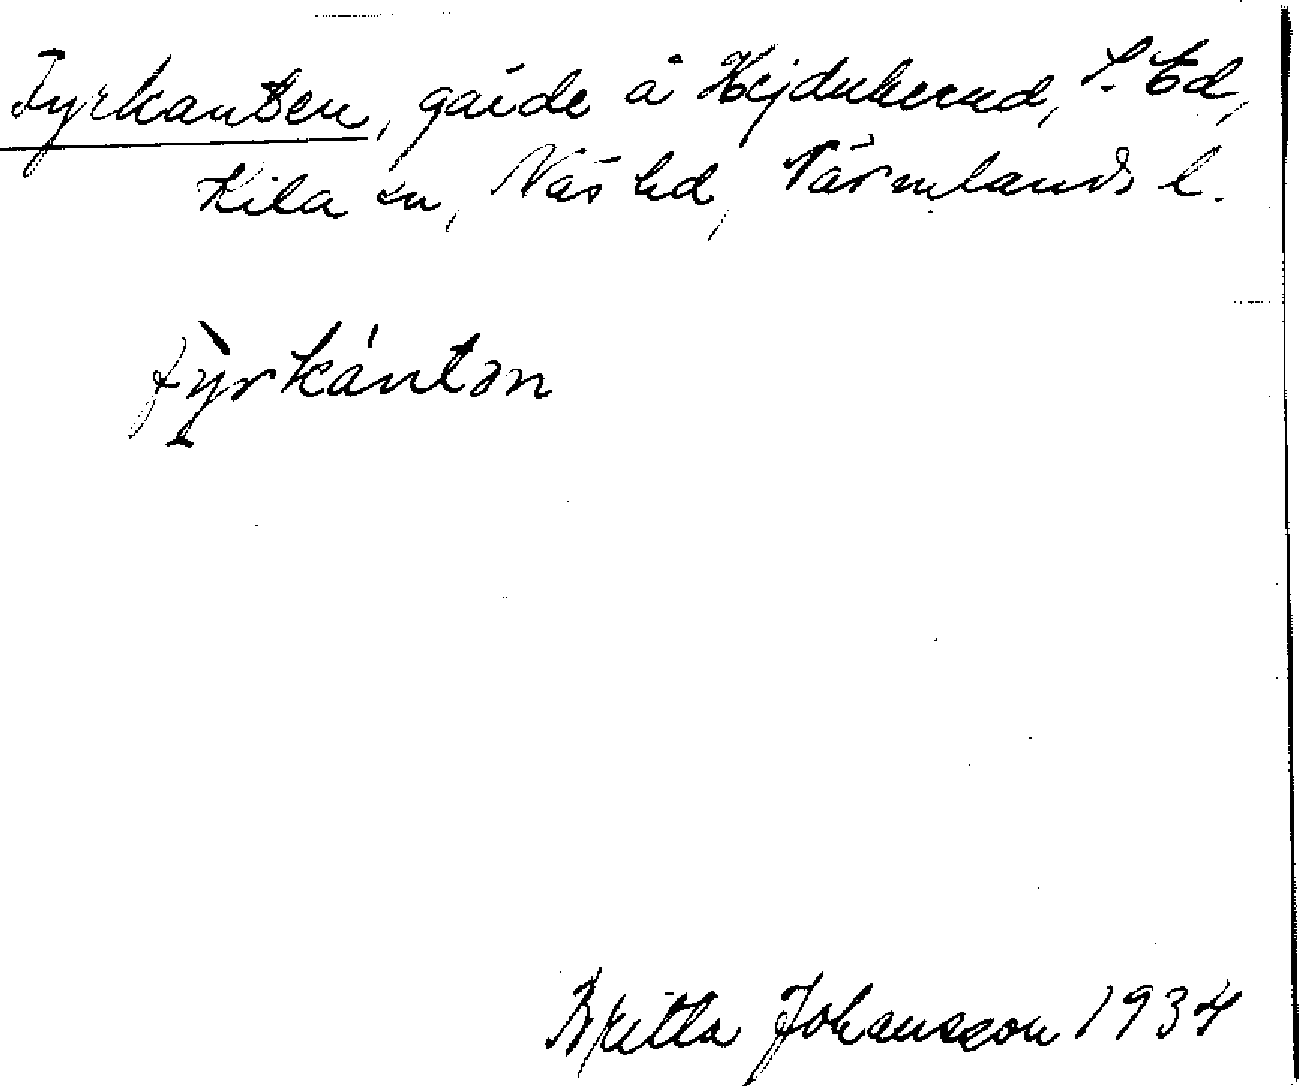 Fyrkanten, gärde å Hejdukerud, S. Ed,
Kila sn, Näs hd, Värmlands l.
fỳrkántən
Britta Johansson 1934